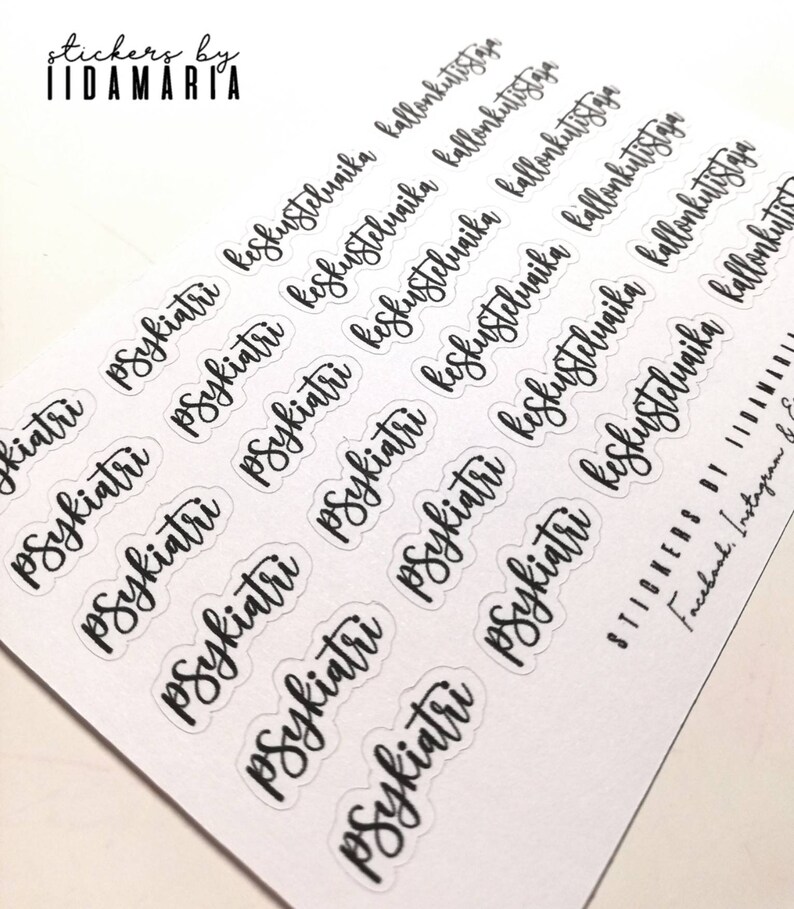 stickers by
IIDAMARIA
ykiatri psykiatri keskusteluaika kallonkutistaja
psykiatri psykiatri keskusteluaika kallonkutistaja
psykiatri psykiatri keskusteluaika kallonkutistaja
psykiatri psykiatri keskusteluaika kallonkutistaja
psykiatri psykiatri keskusteluaika kallonkutistaja
psykiatri psykiatri keskusteluaika kallonkutist
STICKERS BY IIDAMARIA
Facebook, Instagram &